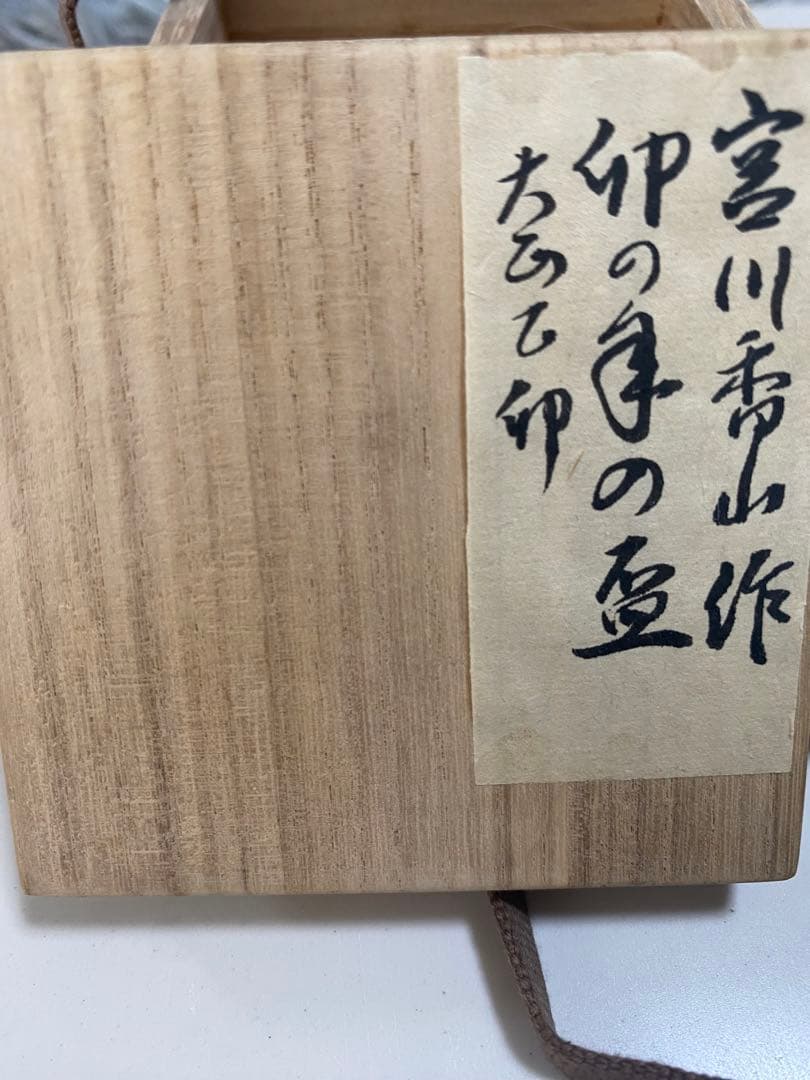 宮川香山作
卯の年の盃
大正乙卯